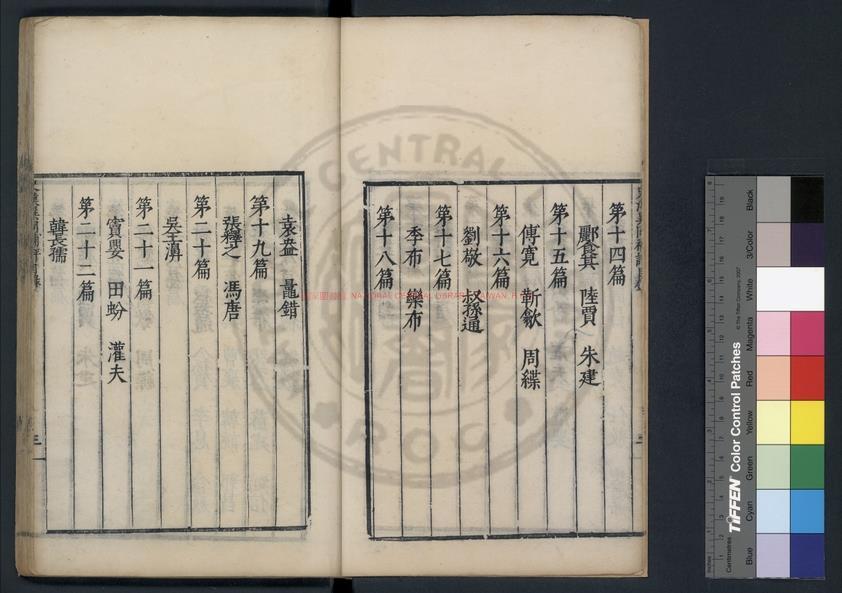 第十四篇
酈食其 陸賈 朱建
第十五篇
傅寬 靳歙 周緤
第十六篇
劉敬 叔孫通
第十七篇
季布 欒布
第十八篇
袁盎 鼂錯
第十九篇
張釋之 馮唐
第二十篇
吳王濞
第二十一篇
竇嬰 田蚡 灌夫
第二十二篇
韓長孺
三
CENTRAL
ROC
NATIONAL CENTRAL LIBRARY
TIFFEN Color Control Patches
© The Tiffen Company, 2007
Centimetres
Inches
Blue
Cyan
Green
Yellow
Red
Magenta
White
3/Color
Black